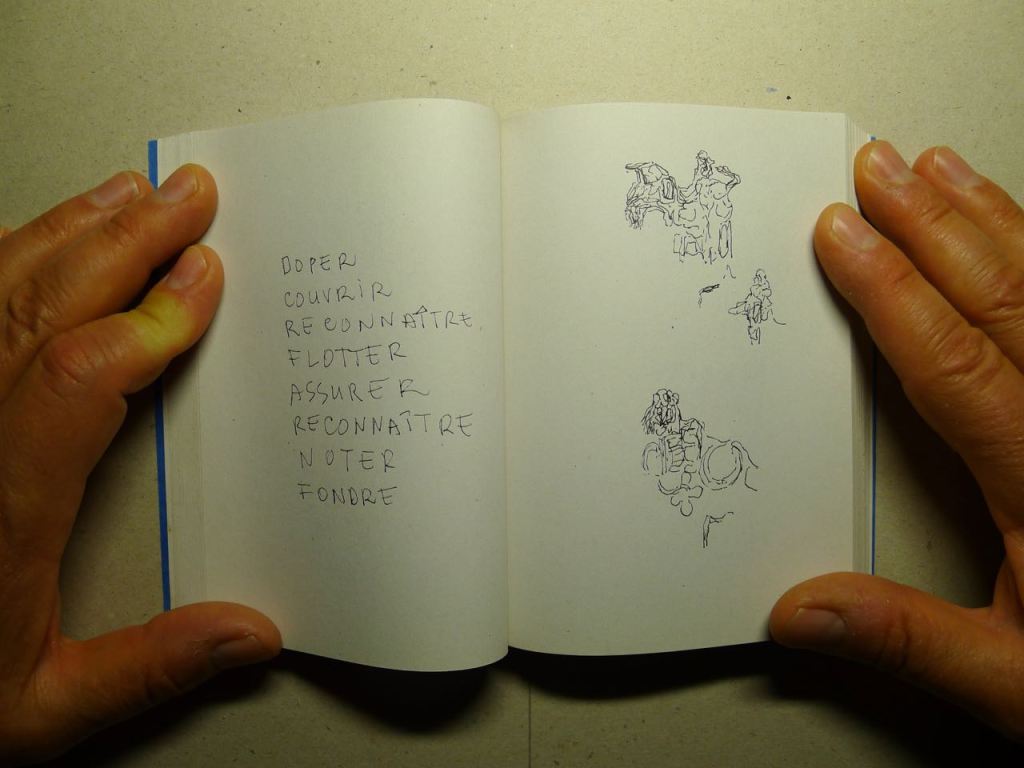 DOPER
COUVRIR
RECONNAÎTRE
FLOTTER
ASSURER
RECONNAÎTRE
NOTER
FONDRE